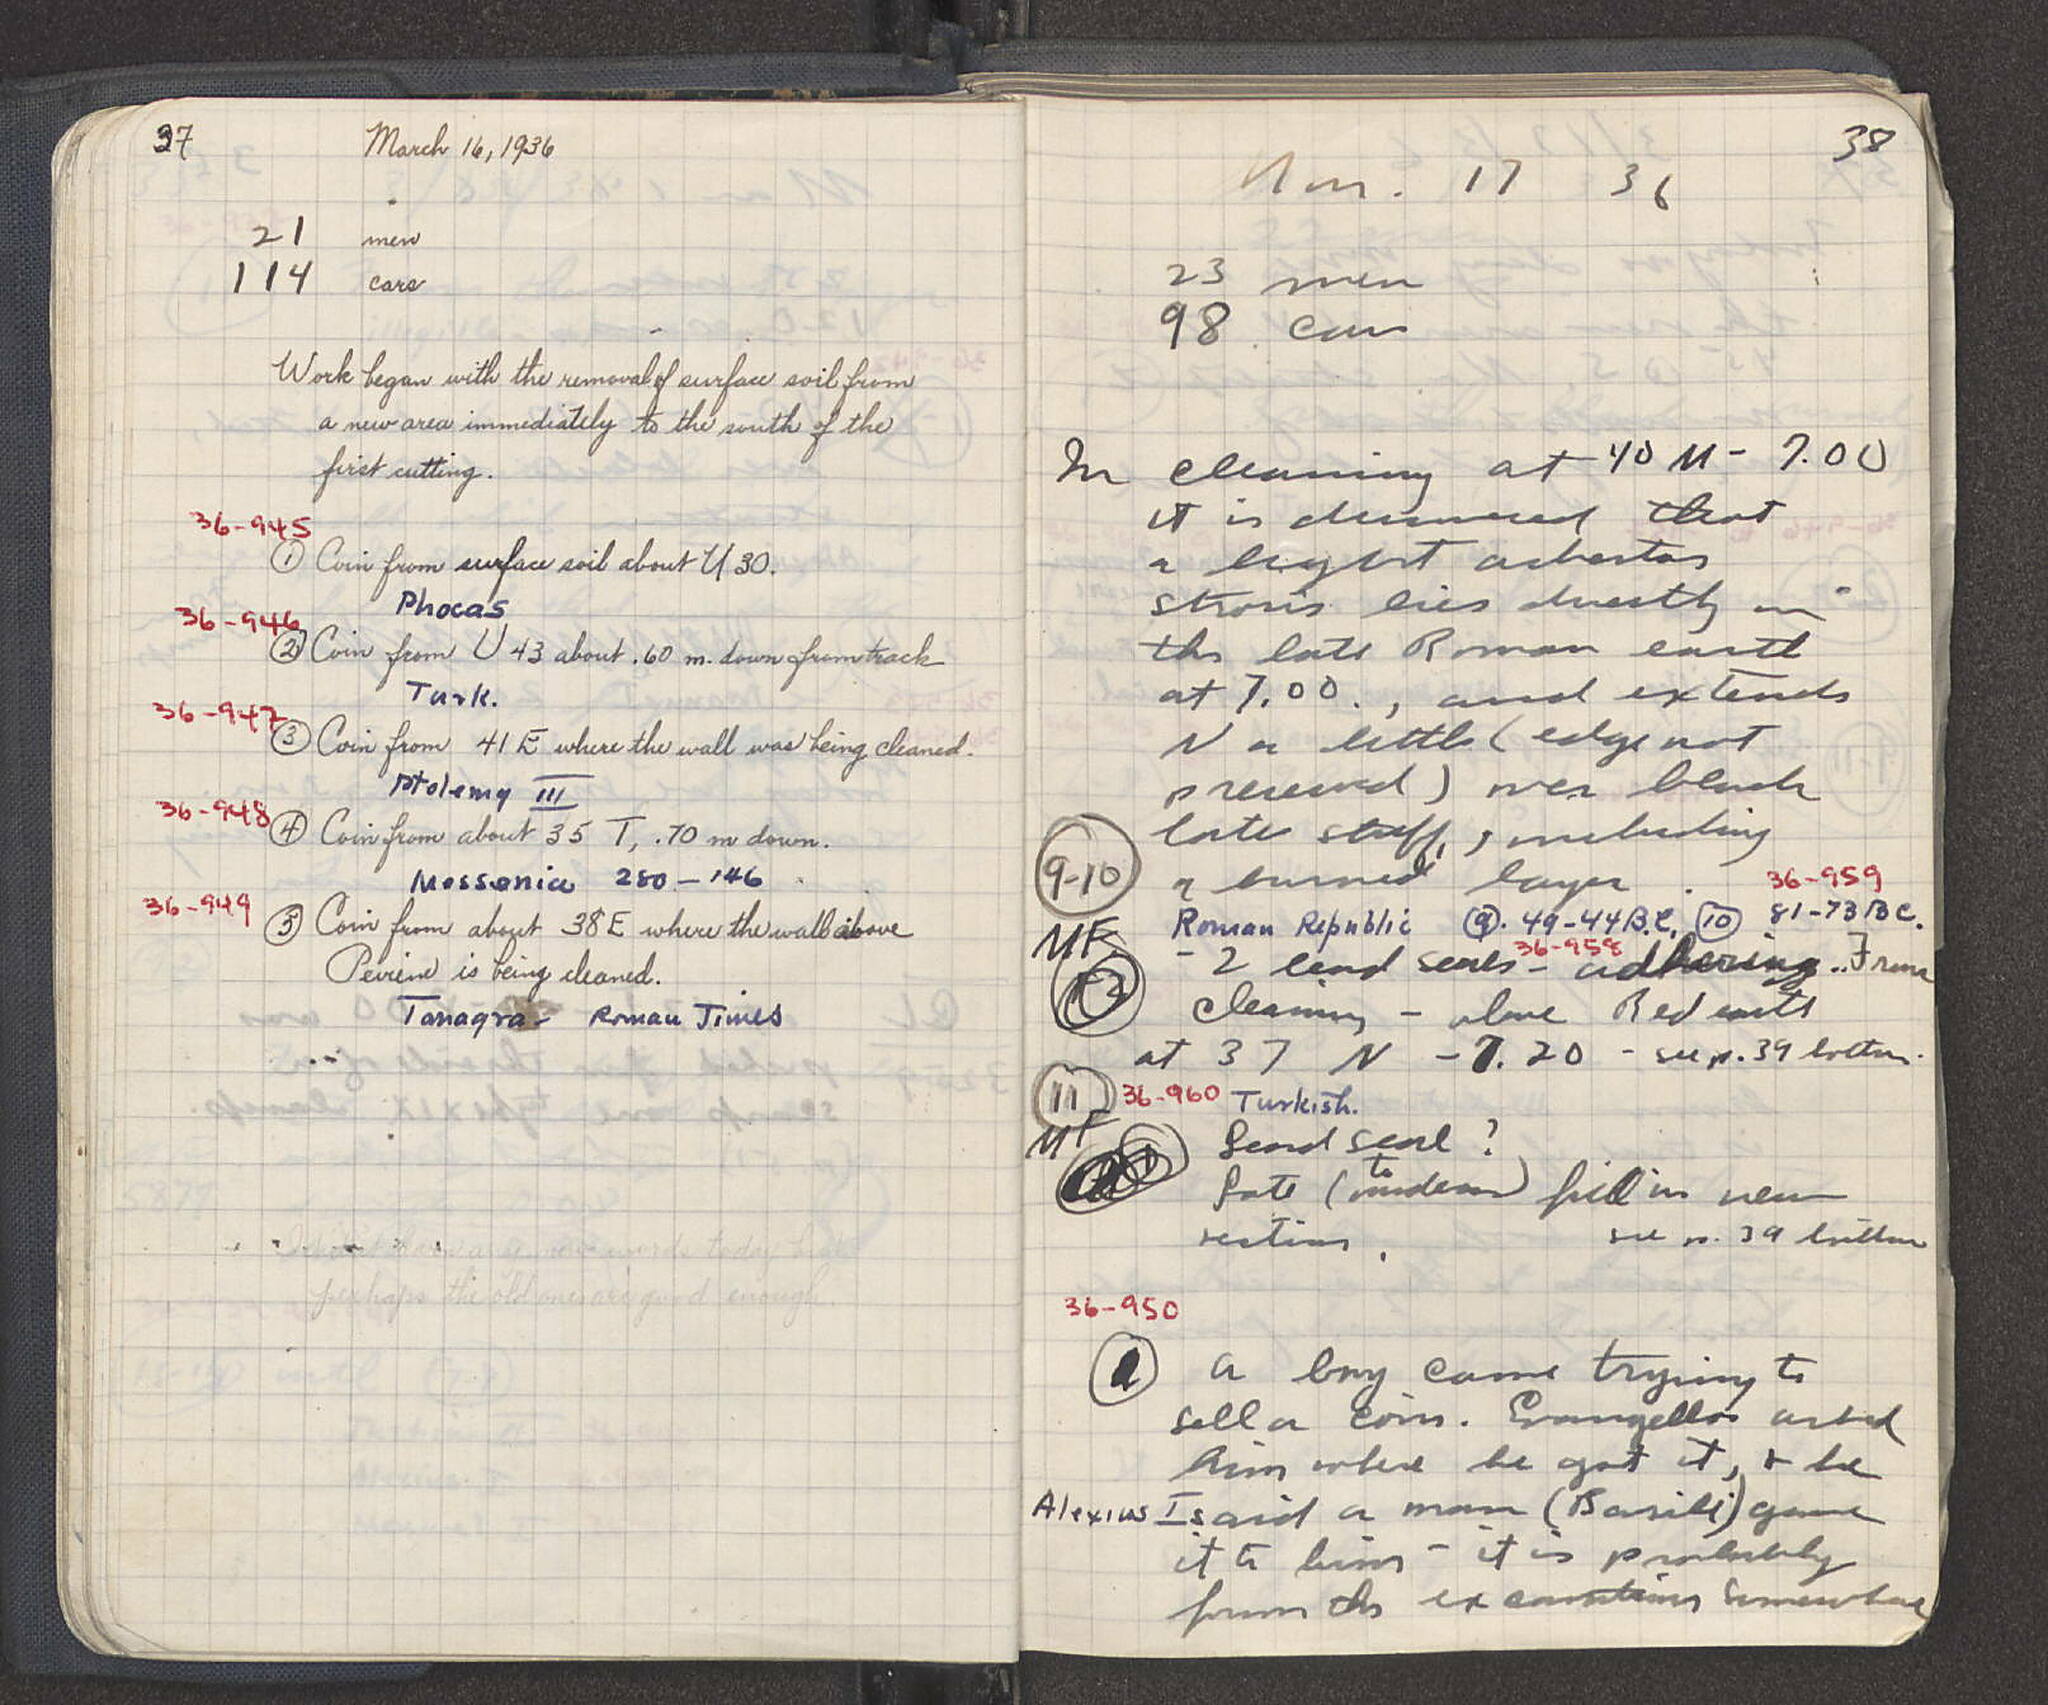 37
March 16, 1936
21 men
114 cars
Work began with the removal of surface soil from
a new area immediately to the south of the
first cutting.
36-945
① Coin from surface soil about U 30.
Phocas
36-946
② Coin from U 43 about .60 m. down from track
Turk.
36-947
③ Coin from 41 E where the wall was being cleaned.
Ptolemy III
36-948
④ Coin from about 35 T, .70 m down.
Messenia 280-146
36-949
⑤ Coin from about 38 E where the wall above
Peirene is being cleaned.
Tanagra - Roman Times
words today but
perhaps the old ones are good enough.
38
Mar. 17 36
23 men
98 cars
In cleaning at 40 M - 7.00
it is discovered that
a light asbestos
stroses lies directly on
the late Roman earth
at 7.00., and extends
N a little (edge not
preserved) over black
late stuff, including
9-10 a burned layer.
36-959
Roman Republic ⑨. 49-44 B.C. ⑩ 81-73 B.C.
36-958
MF - 2 lead seals - adhering.. From
1-2 cleaning - above Red earth
at 37 N - 7.20 - see p. 39 bottom.
11 36-960 Turkish.
MF Lead seal?
Late (to modern) fill in new
section. see p. 39 bottom
36-950
① A boy came trying to
sell a coin. Evangellos asked
him where he got it, & he
Alexius I said a man (Basili) gave
it to him - it is probably
from the excavations somewhere